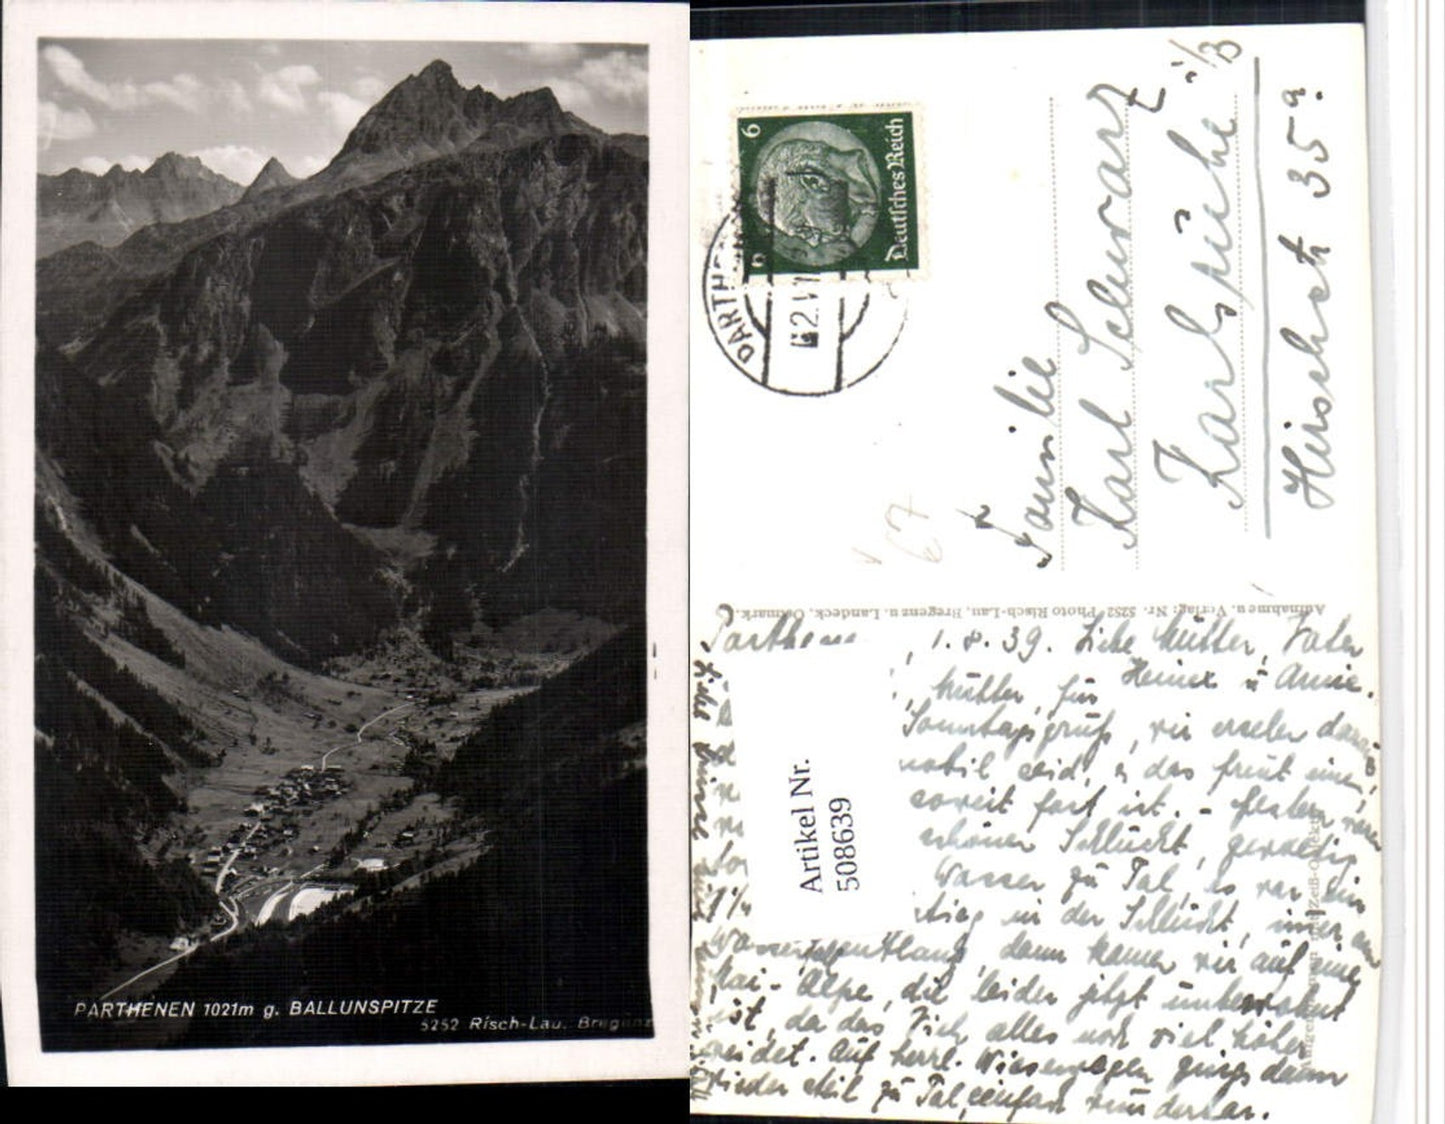 PARTHENEN 1021m g. BALLUNSPITZE
5252 Risch-Lau. Bregenz
6
Deutsches Reich
6
PARTHE
2.VII
67
Familie
Karl Schwarz
Karlsruhe i/B
Hirschstr 35a.
Aufnahme u. Verlag: Nr. 5252 Photo Risch-Lau, Bregenz u. Landeck, Ostmark.
Artikel Nr.
508639
Parthenen, 1.8.39. Liebe Mutter, Vater
Heiner u Annie.
Mutter, für
Sonntagsgruß, wir ersehen daraus
mobil seid, u das freut uns,
soweit fort ist. - Gestern waren
schöner Schlucht, gewaltig
Wasser zu Tal, es war ein
stieg in der Schlucht, immer am
Wasser entlang dann kamen wir auf eine
Mai-Alpe, die leider jetzt unbewohnt
ist, da das Vieh alles noch viel höher
weidet. Auf herrl. Wiesenwegen gings dann
wieder steil zu Tal, einfach wunderbar.